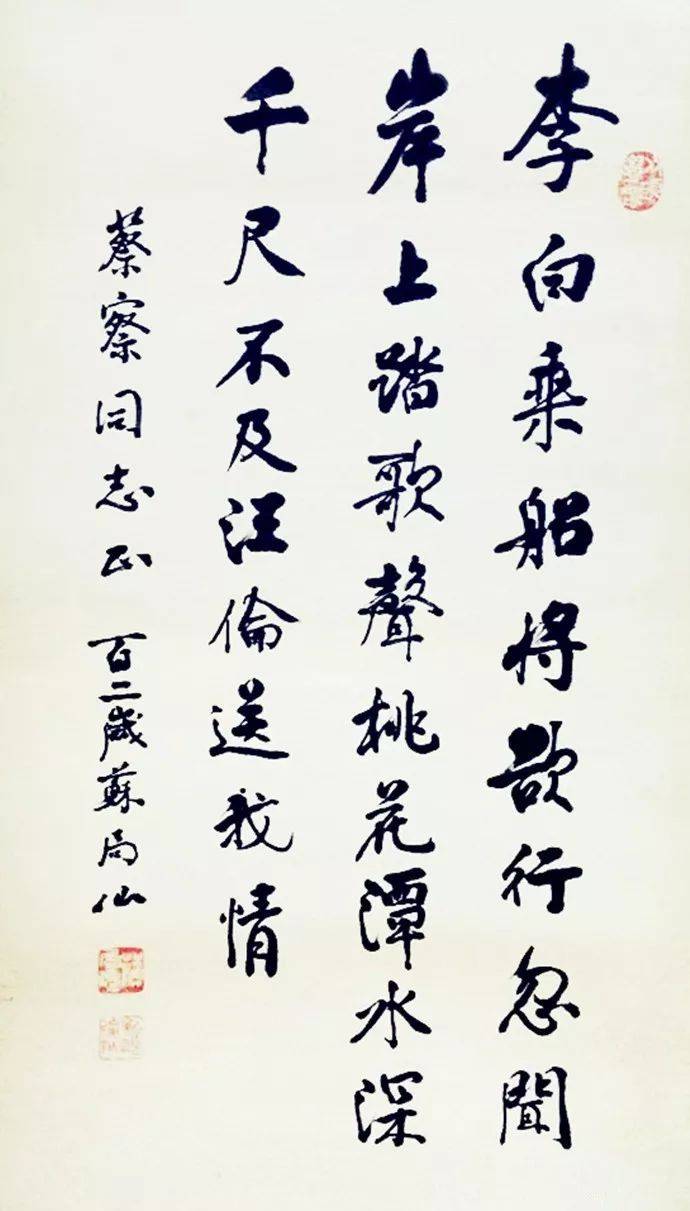 李白乘船将欲行忽聞
岸上踏歌聲桃花潭水深
千尺不及汪倫送我情
蔡察同志正 百二歲蘇局仙